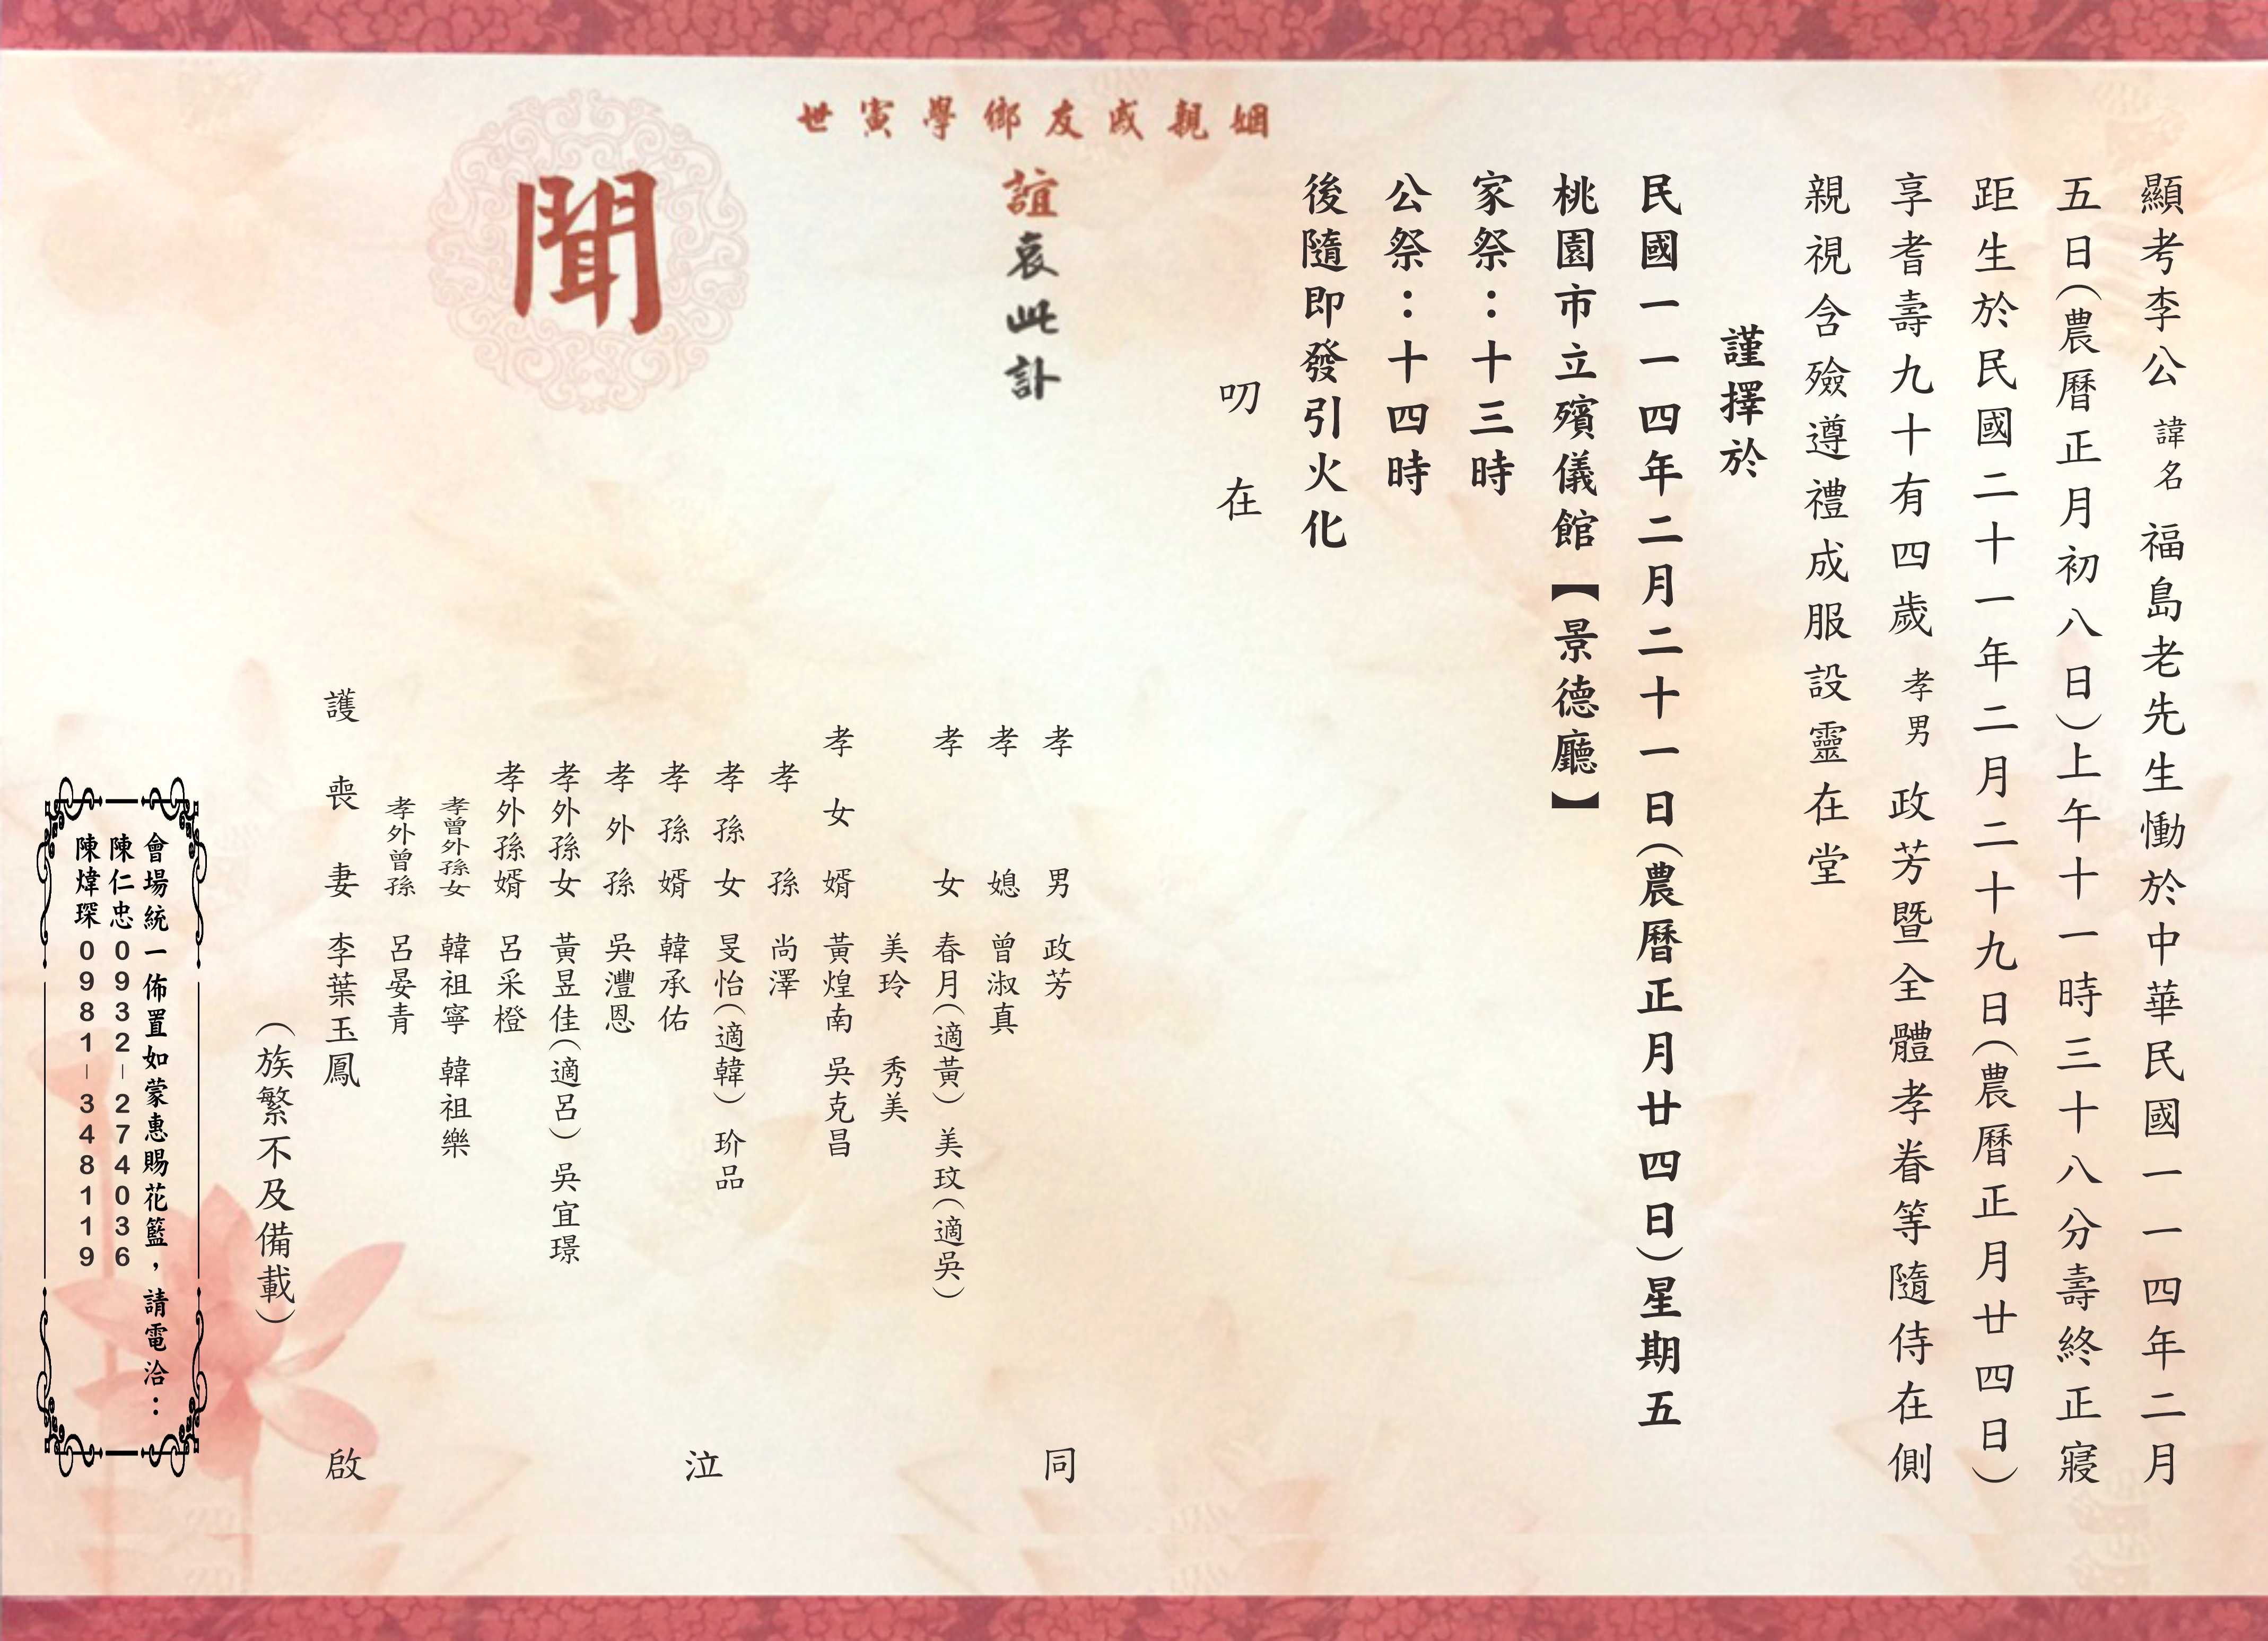 顯考李公諱名福島老先生慟於中華民國一一四年二月
五日(農曆正月初八日)上午十一時三十八分壽終正寢
距生於民國二十一年二月二十九日(農曆正月廿四日)
享耆壽九十有四歲孝男政芳暨全體孝眷等隨侍在側
親視含殮遵禮成服設靈在堂
謹擇於
民國一一四年二月二十一日(農曆正月廿四日)星期五
桃園市立殯儀館【景德廳】
家祭：十三時
公祭：十四時
後隨即發引火化
叨在
姻親戚友鄉學寅世
誼哀此訃
聞
孝男 政芳
孝媳 曾淑真
孝女 春月(適黃) 美玟(適吳)
美玲 秀美
孝女婿 黃煌南 吳克昌
孝孫 尚澤
孝孫女 旻怡(適韓) 玠品
孝孫婿 韓承佑
孝外孫 吳灃恩
孝外孫女 黃昱佳(適呂) 吳宜璟
孝外孫婿 呂采橙
孝曾外孫女 韓祖寧 韓祖樂
孝外曾孫 呂晏青
護喪妻 李葉玉鳳
同泣啟
(族繁不及備載)
會場統一佈置如蒙惠賜花籃，請電洽：
陳仁忠0932-274036
陳煒琛0981-348119